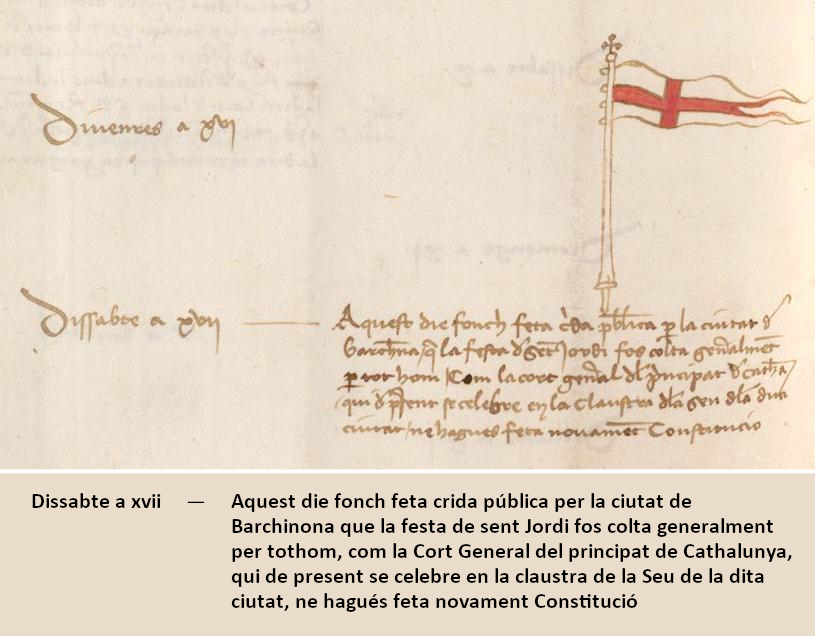 Divenres a xvj
Dissabte a xvij — Aquest die fonch feta c̃da pỡlica ꝑ la ciutat đ
Barch̃na / q̃ la festa đ Set Jordi fos colta geñalmet̃
ꝑ tot hom / Com la cort geñal đl p̃ncipat đ cath̃a
qui đ p̃sent se celebre en la Claustra đla seu đla dita
ciutat / ne hagues feta novamet̃ Constitucio
Dissabte a xvii — Aquest die fonch feta crida pública per la ciutat de
Barchinona que la festa de sent Jordi fos colta generalment
per tothom, com la Cort General del principat de Cathalunya,
qui de present se celebre en la claustra de la Seu de la dita
ciutat, ne hagués feta novament Constitució